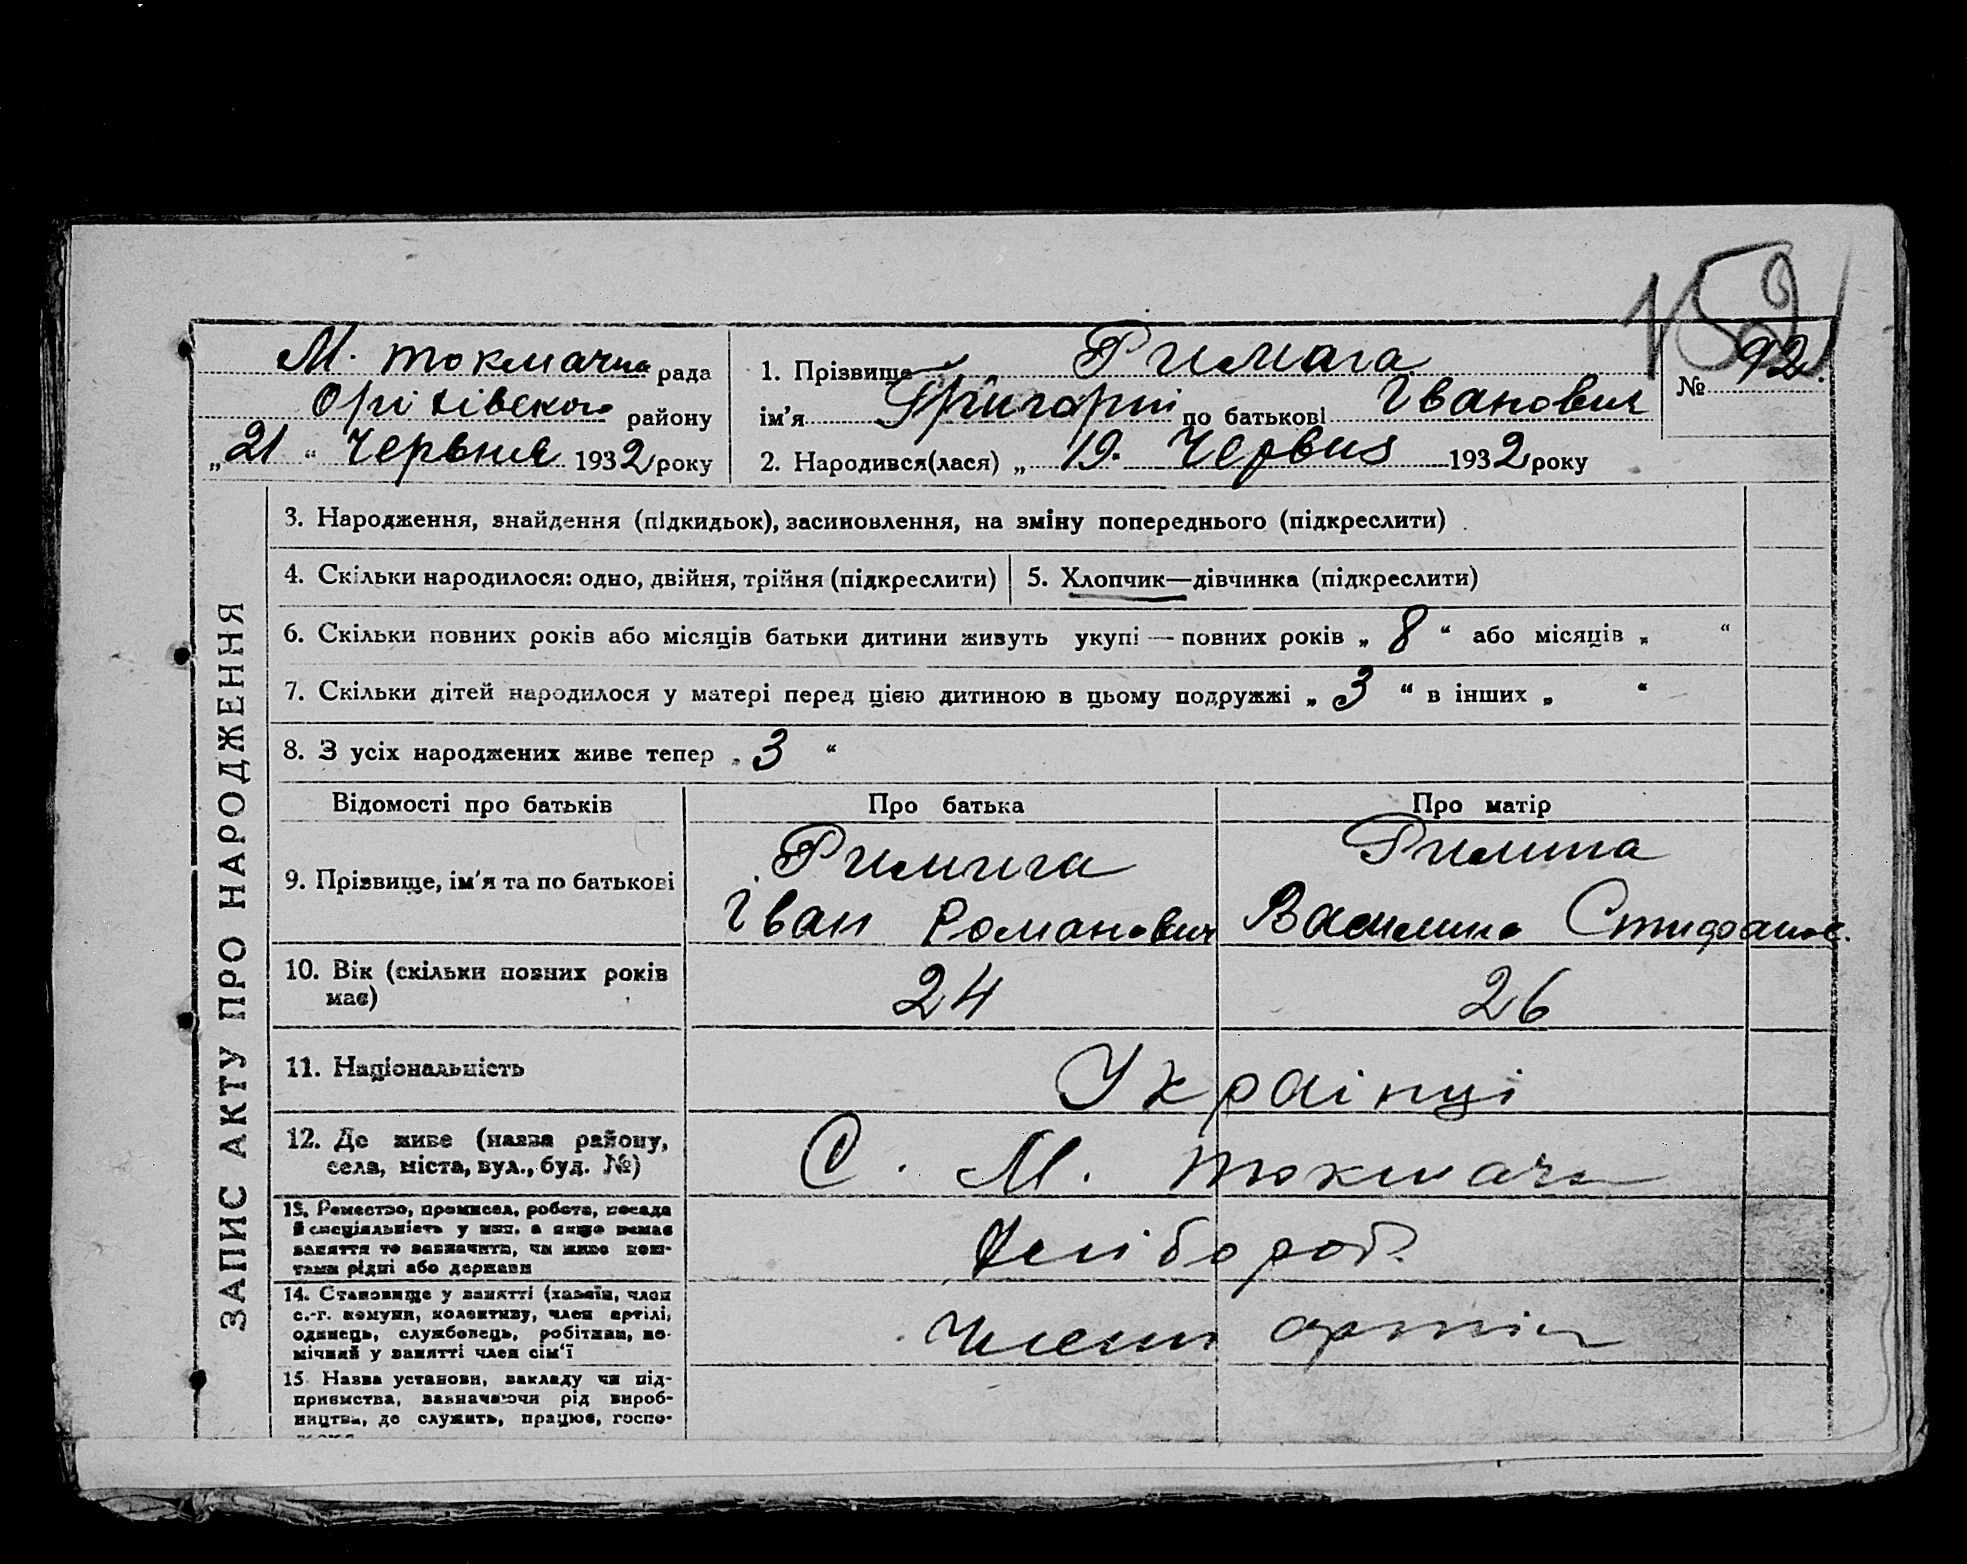 159
М. токмачна рада
Оріхівского району
„21“ Червня 1932 року
1. Прізвище Римага
ім'я Григорій по батькові Іванович
2. Народився(лася) „ 19. Червня 1932 року
№ 92.
ЗАПИС АКТУ ПРО НАРОДЖЕННЯ
3. Народження, знайдення (підкидьок), засиновлення, на зміну попереднього (підкреслити)
4. Скільки народилося: одно, двійня, трійня (підкреслити)
5. Хлопчик—дівчинка (підкреслити)
6. Скільки повних років або місяців батьки дитини живуть укупі — повних років „ 8 “ або місяців „ “
7. Скільки дітей народилося у матері перед цією дитиною в цьому подружжі „ 3 “ в інших „ “
8. З усіх народжених живе тепер „ 3 “
Відомості про батьків
Про батька
Про матір
9. Прізвище, ім'я та по батькові
Римига
Іван Романович
Василина Стифанов.
10. Вік (скільки повних років
має)
24
26
11. Національність
Українці
12. Де живе (назва району,
села, міста, вул., буд. №)
С. М. токмач
13. Ремество, промисел, робота, посада
й спеціяльність у них, а якщо немає
заняття то зазначити, чи живе кош-
тами рідні або держави
Хлібороб.
14. Становище у занятті (хазяїн, член
с.-г. комуни, колективу, член артілі,
одинець, службовець, робітник, по-
мічний у занятті член сім'ї
Члени артіл
15 Назва установи, закладу чи під-
приємства, зазначаючи рід вироб-
ництва, де служить, працює, госпо-